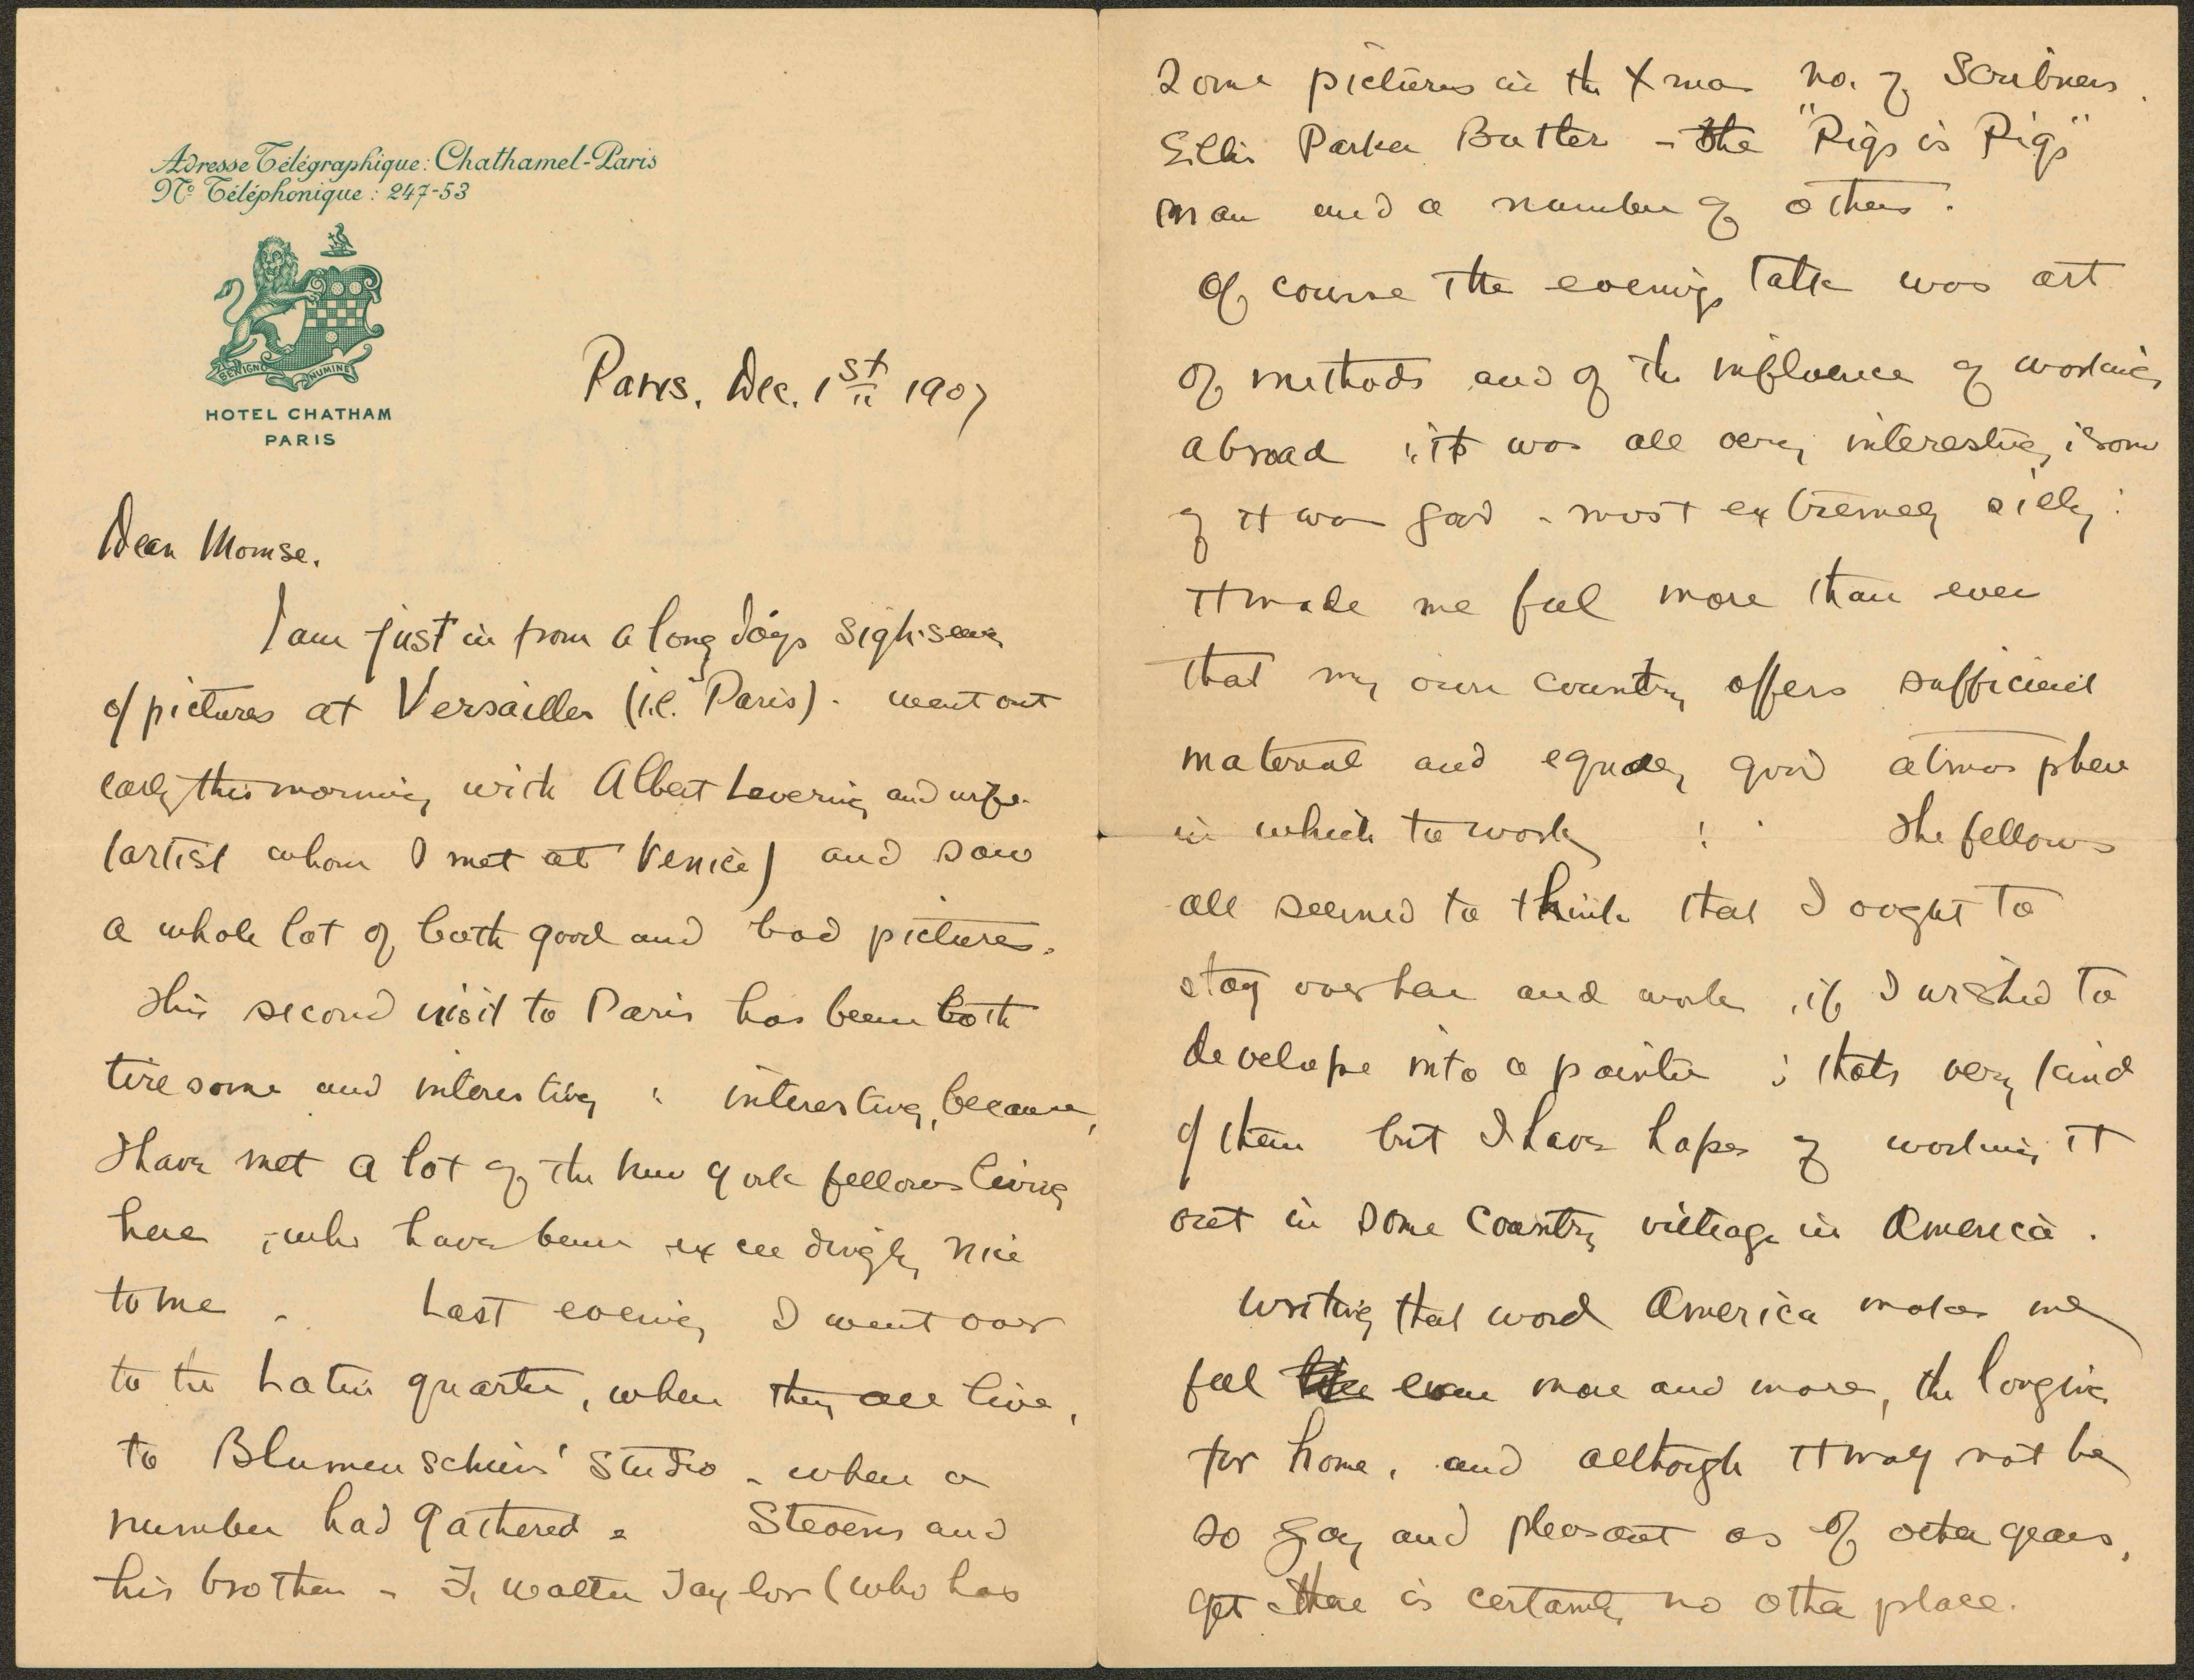 Adresse Télégraphique: Chathamel-Paris
No Téléphonique: 247-53
BENIGNO NUMINE
HOTEL CHATHAM
PARIS
Paris. Dec. 1st 1907
Dear Momse.
I am just in from a long days sigh-seeing
of pictures at Versailles (i.e. Paris). went out
early this morning with Albert Levering and wife.
(artist whom I met at Venice) and saw
a whole lot of both good and bad pictures.
This second visit to Paris has been both
tiresome and interesting : interesting, because,
I have met a lot of the New York fellows living
here , who have been exceedingly nice
to me . Last evening I went over
to the Latin quarter, where they all live,
to Blumenschein's studio - where a
number had gathered - Stevens and
his brother - F. Walter Taylor (who has
some pictures in the Xmas no. of Scribners.
Ellis Parker Butler - the "Pigs is Pigs"
man and a number of others.
Of course the evenings talk was art
of methods and of the influence of working
abroad ; it was all very interesting ; some
of it was good - most extremely silly :
it made me feel more than ever
that my own country offers sufficient
material and equally good atmosphere
in which to work ! The fellows
all seemed to think that I ought to
stay over here and work , if I wished to
develope into a painter ; thats very kind
of them but I have hopes of working it
out in some country village in America .
Writing that word America makes me
feel even more and more, the longing
for home , and although it may not be
so gay and pleasant as of other years,
yet there is certainly no other place.